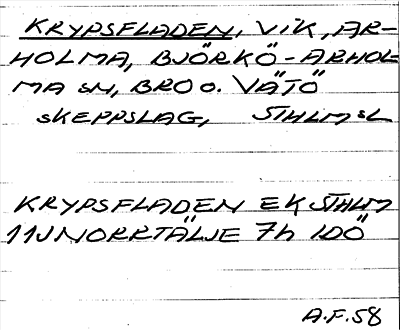 KRYPSFLADEN, VIK, AR-
HOLMA, BJÖRKÖ-ARHOL
MA SN, BRO O. VÄTÖ
SKEPPSLAG, STHLMSL
KRYPSFLADEN EK STHLM
11J NORRTÄLJE 7h IDÖ
A.F. 58